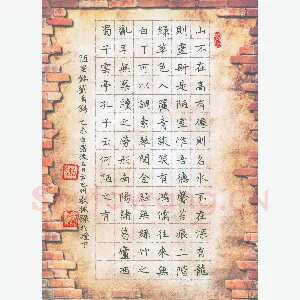 山不在高有仙則名水不在深有龍
則靈斯是陋室惟吾德馨苔痕上階
綠草色入簾青談笑有鴻儒往來無
白丁可以調素琴閱金經無絲竹之
亂耳無案牘之勞形南陽諸葛廬西
蜀子雲亭孔子云何陋之有
陋室銘劉禹錫